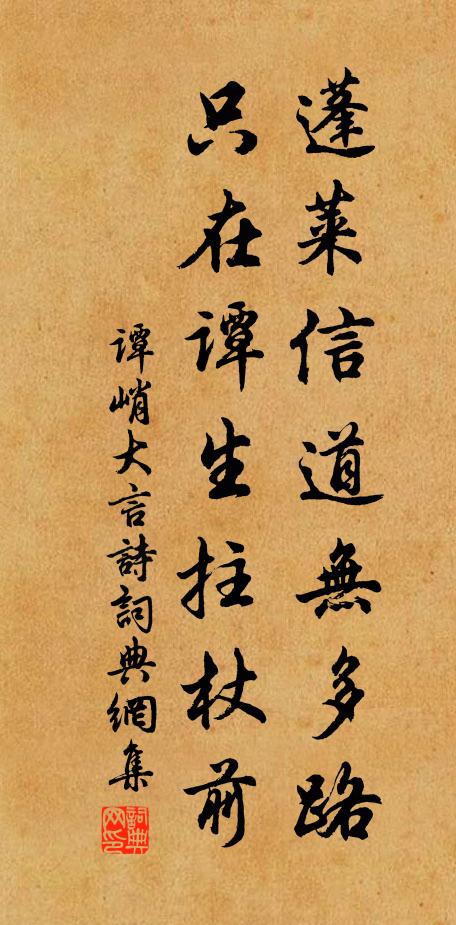 蓬萊信道無多路
只在譚生拄杖前
譚峭大言詩詞典網集
詞典網印